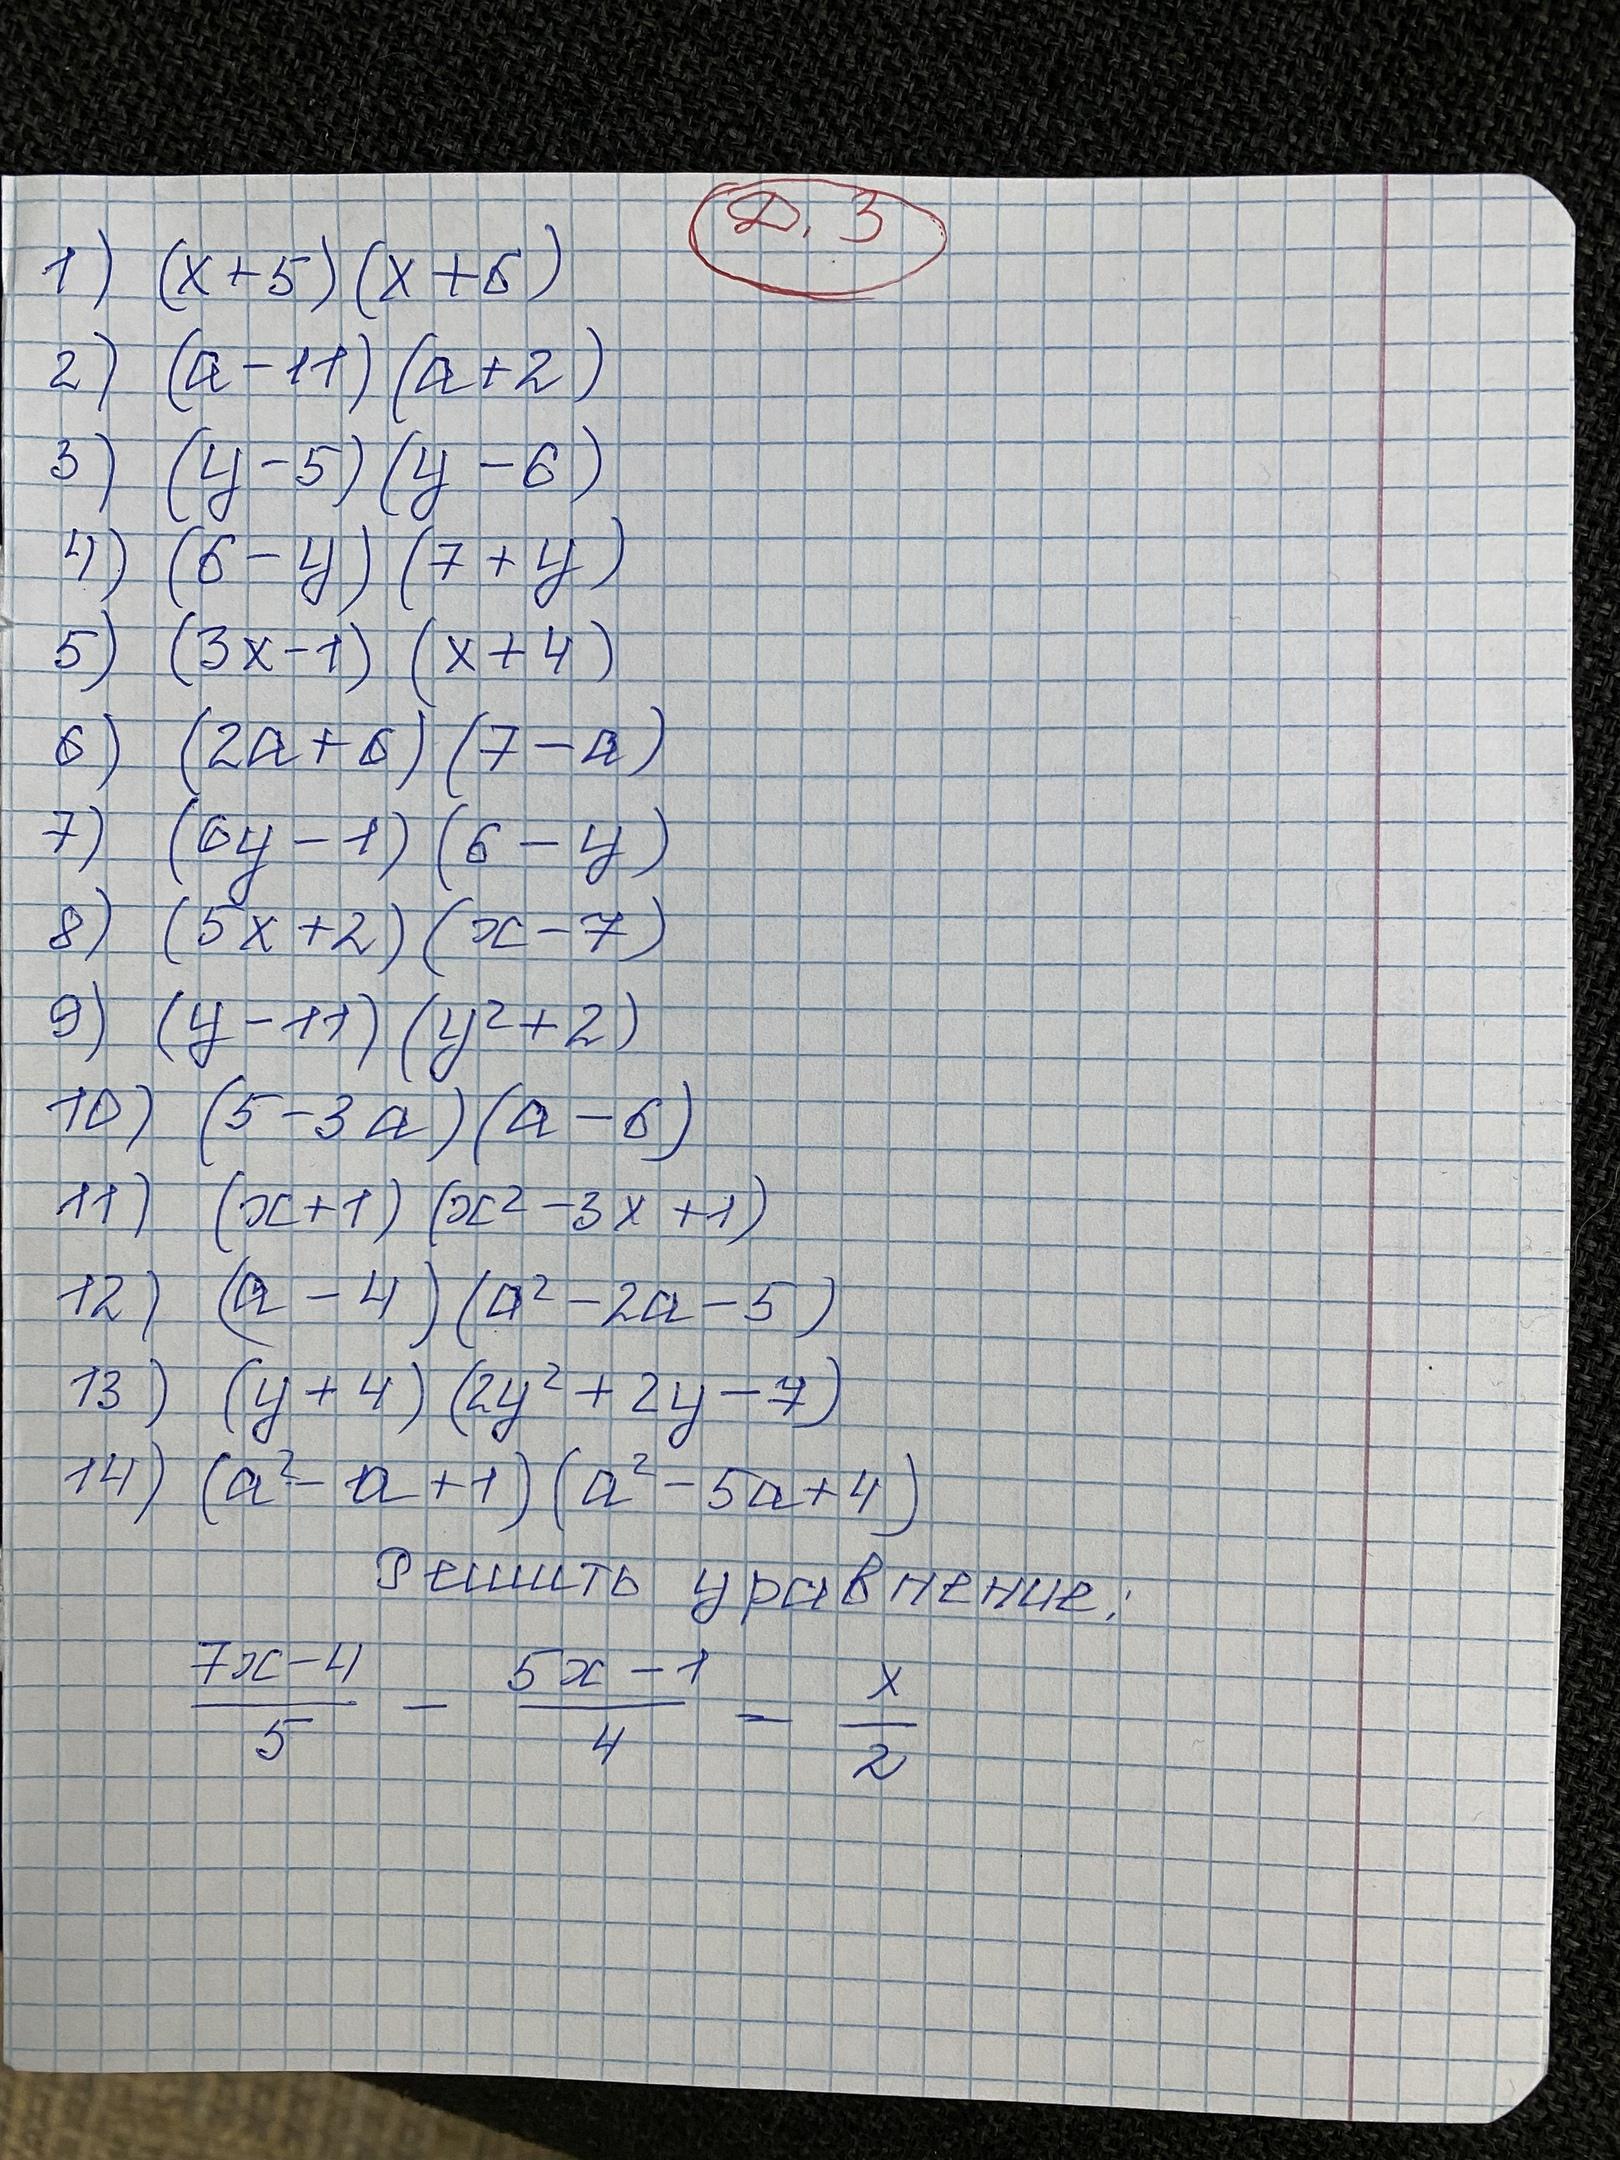 Д. З
1) (x+5)(x+6)
2) (a-11)(a+2)
3) (y-5)(y-6)
4) (6-y)(7+y)
5) (3x-1)(x+4)
6) (2a+6)(7-a)
7) (6y-1)(6-y)
8) (5x+2)(x-7)
9) (y-11)(y²+2)
10) (5-3a)(a-6)
11) (x+1)(x²-3x+1)
12) (a-4)(a²-2a-5)
13) (y+4)(2y²+2y-7)
14) (a²-a+1)(a²-5a+4)
Решить уравнение:
(7x-4)/5 - (5x-1)/4 = x/2